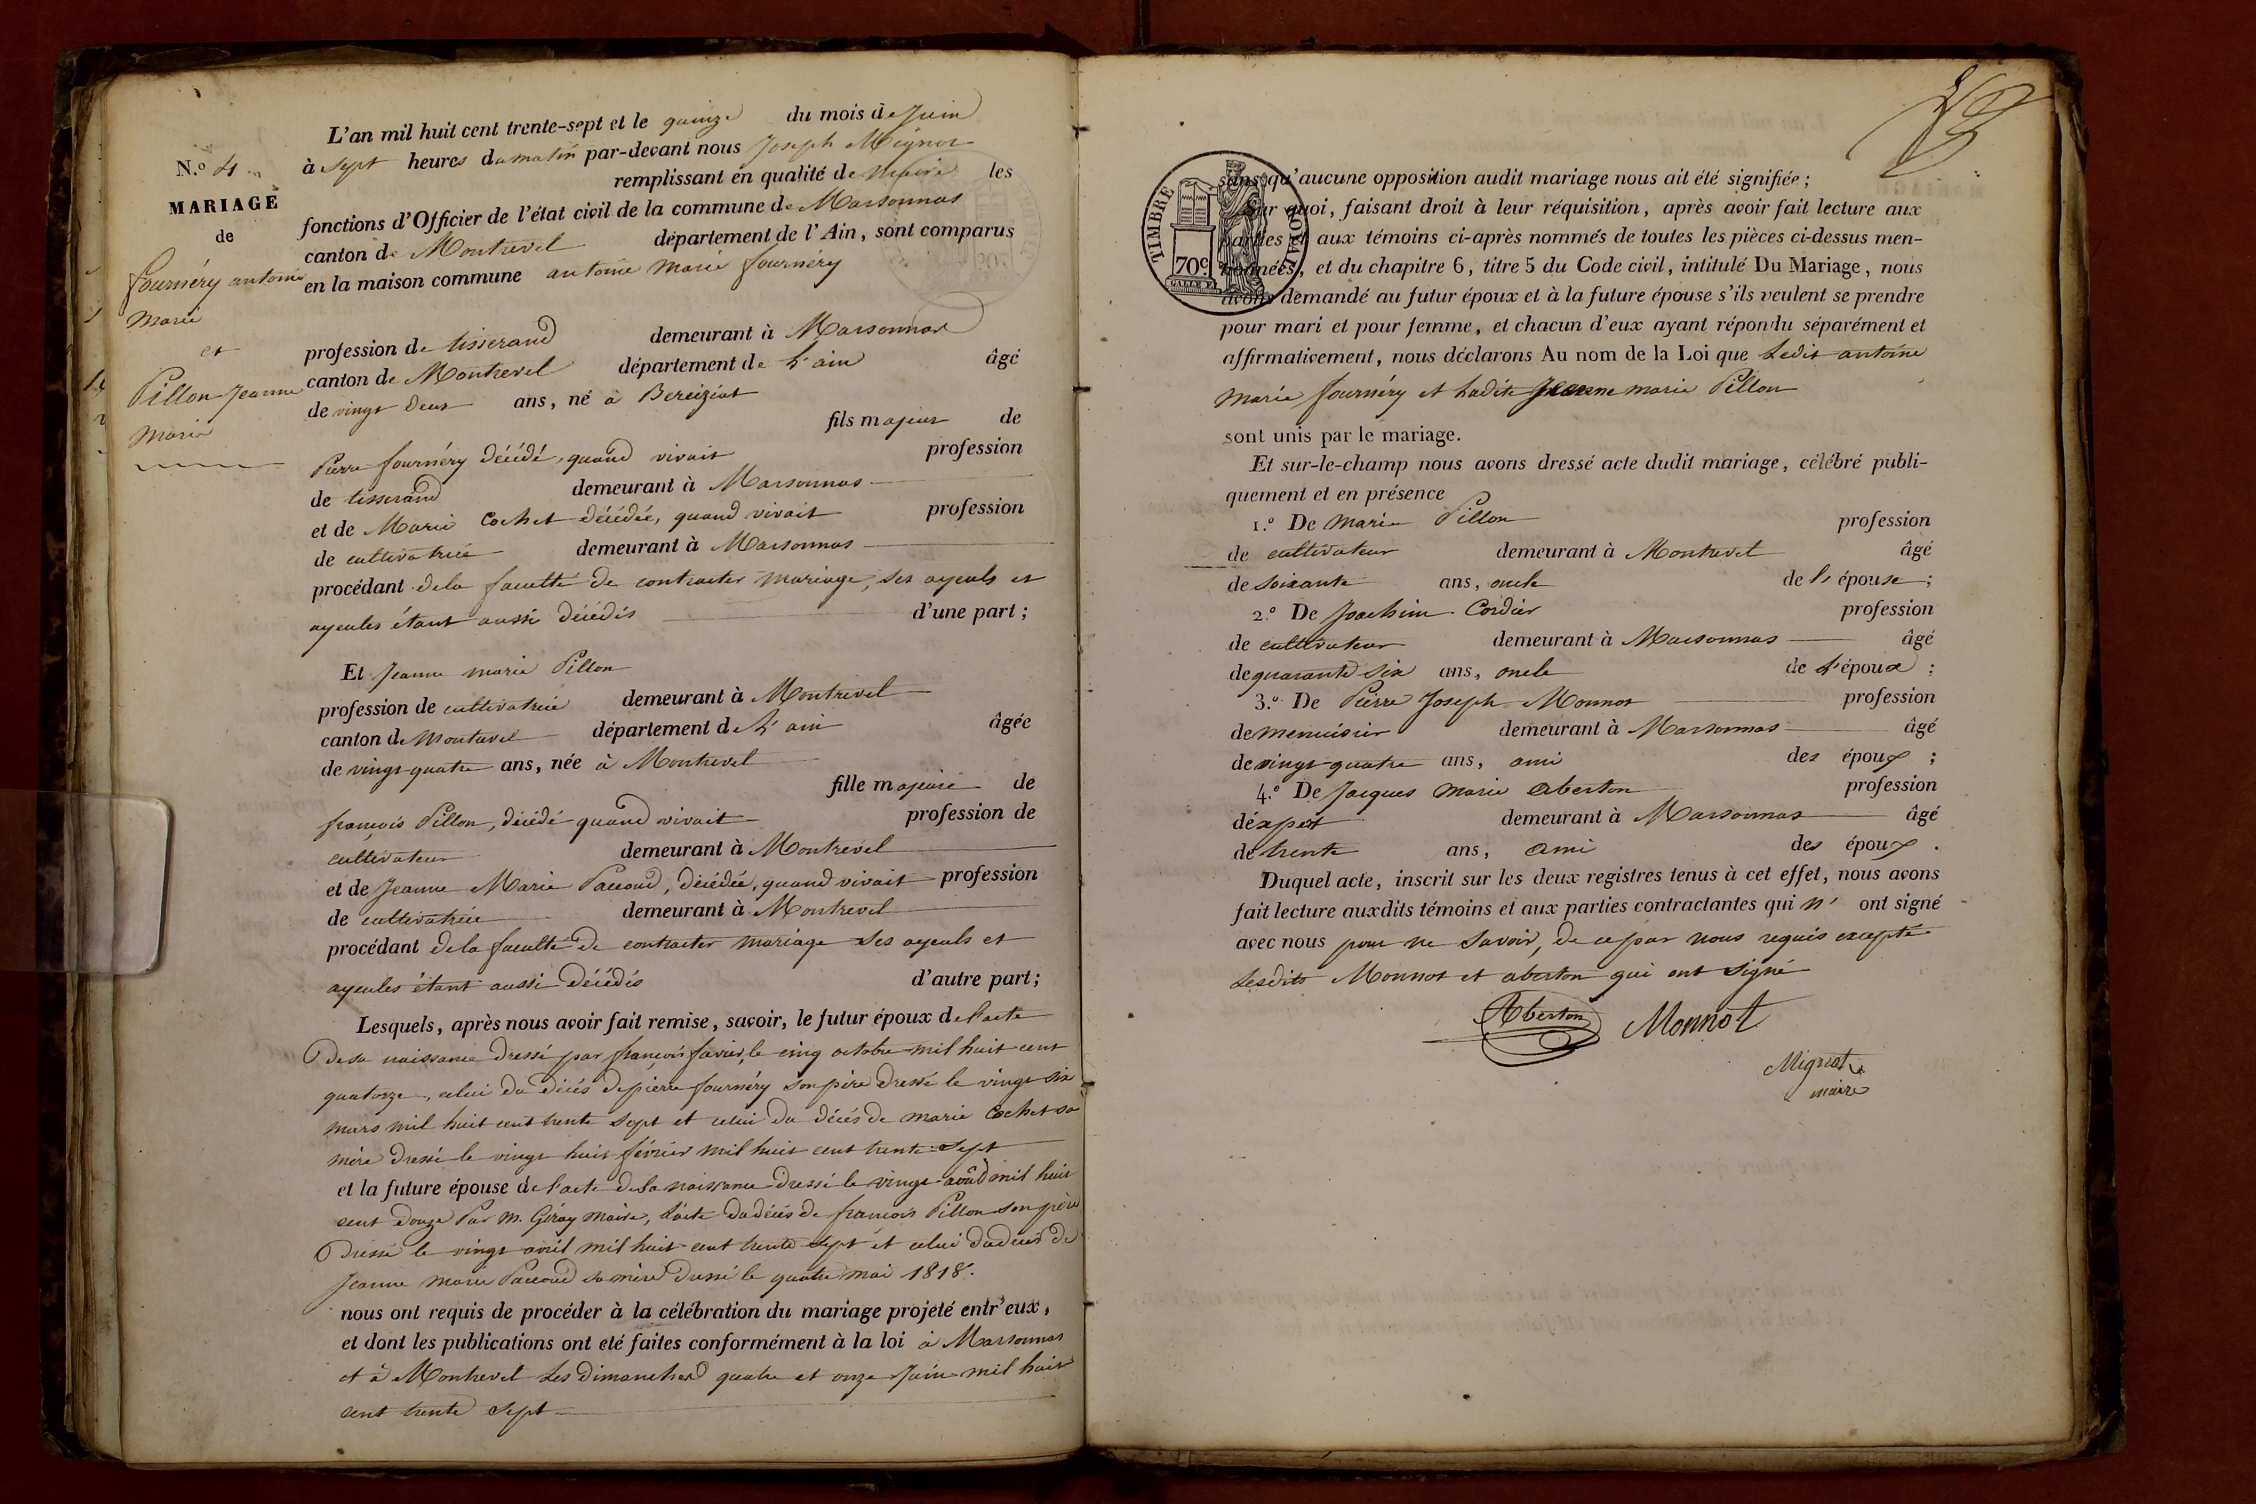 N.o 4
MARIAGE
de
fournéry antoine
marie
et
Pillon Jeanne
marie
L'an mil huit cent trente-sept et le quinze du mois de Juin
à sept heures du matin par-devant nous Joseph Mignot
remplissant en qualité de Maire les
fonctions d'Officier de l'état civil de la commune de Marsonnas
canton de Montrevel département de l'Ain, sont comparus
en la maison commune antoine marie fournéry
profession de tisserand demeurant à Marsonnas
canton de Montrevel département de L'ain âgé
de vingt deux ans, né à Bereiziat
fils majeur de
Pierre fournéry décédé, quand vivait profession
de tisserand demeurant à Marsonnas
et de Marie Cochet décédée, quand vivait profession
de cultivatrice demeurant à Marsonnas
procédant de la faculté de contracter mariage, ses ayeuls et
ayeules étant aussi décédés d'une part;
Et Jeanne marie Pillon
profession de cultivatrice demeurant à Montrevel
canton de Montrevel département de L'ain âgée
de vingt-quatre ans, née à Montrevel
fille majeure de
françois Pillon, décédé quand vivait profession de
cultivateur demeurant à Montrevel
et de Jeanne Marie Paccoud, décédée, quand vivait profession
de cultivatrice demeurant à Montrevel
procédant de la faculté de contracter mariage ses ayeuls et
ayeules étant aussi décédés d'autre part;
Lesquels, après nous avoir fait remise, savoir, le futur époux de l'acte
de sa naissance dressé par françois favier, le cinq octobre mil huit cent
quatorze, celui du décés de pierre fournéry son père dressé le vingt six
mars mil huit cent trente sept et celui du décés de marie Cochet sa
mère dressé le vingt huit février mil huit cent trente sept
et la future épouse de l'acte de sa naissance dressé le vingt août mil huit
cent douze Par M. Géray Maire, L'acte du décés de françois Pillon son père
dressé le vingt avril mil huit cent trente sept et celui du décés de
Jeanne marie Paccoud sa mère dressé le quatre mai 1818.
nous ont requis de procéder à la célébration du mariage projeté entr'eux,
et dont les publications ont eté faites conformément à la loi à Marsonnas
et à Montrevel Les dimanches quatre et onze Juin mil huit
cent trente sept
TIMBRE ROYAL
70c
sans qu'aucune opposition audit mariage nous ait été signifiée;
Sur quoi, faisant droit à leur réquisition, après avoir fait lecture aux
parties et aux témoins ci-après nommés de toutes les pièces ci-dessus men-
tionnées, et du chapitre 6, titre 5 du Code civil, intitulé Du Mariage, nous
avons demandé au futur époux et à la future épouse s'ils veulent se prendre
pour mari et pour femme, et chacun d'eux ayant répondu séparément et
affirmativement, nous déclarons Au nom de la Loi que Ledit antoine
Marie fournéry et Ladite Jeanne marie Pillon
sont unis par le mariage.
Et sur-le-champ nous avons dressé acte dudit mariage, célébré publi-
quement et en présence
1.o De Marie Pillon profession
de cultivateur demeurant à Montrevel âgé
de soixante ans, oncle de L'épouse;
2.o De Joachim Cordier profession
de cultivateur demeurant à Marsonnas âgé
de quarante six ans, oncle de L'époux;
3.o De Pierre Joseph Monnot profession
de menuisier demeurant à Marsonnas âgé
de vingt-quatre ans, ami des époux;
4.o De Jacques Marie Aberton profession
d'expert demeurant à Marsonnas âgé
de trente ans, ami des époux.
Duquel acte, inscrit sur les deux registres tenus à cet effet, nous avons
fait lecture auxdits témoins et aux parties contractantes qui n' ont signé
avec nous pour ne Savoir, de ce par nous requis excepté
Lesdits Monnot et aberton qui ont signé
Aberton Monnot
Mignot
maire